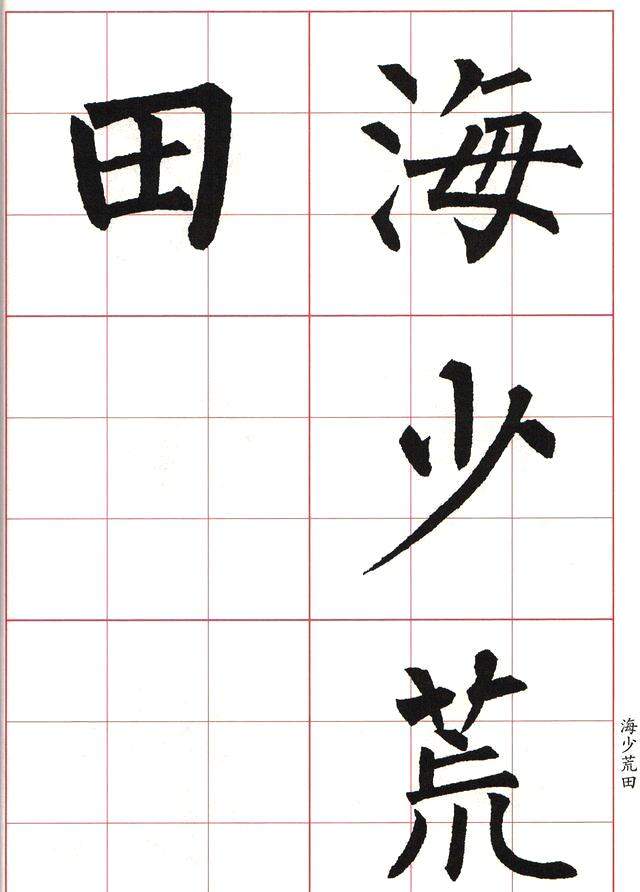 海少荒
田
海少荒田